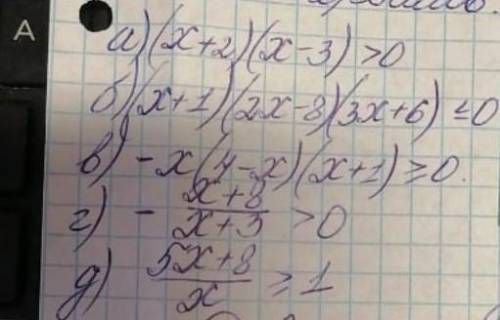 A
а) (x+2)(x-3)>0
б) (x+1)(2x-8)(3x+6)≤0
в) -x(4-x)(x+1)≥0.
г) - x+8/x+3 >0
д) 5x+8/x ≥1